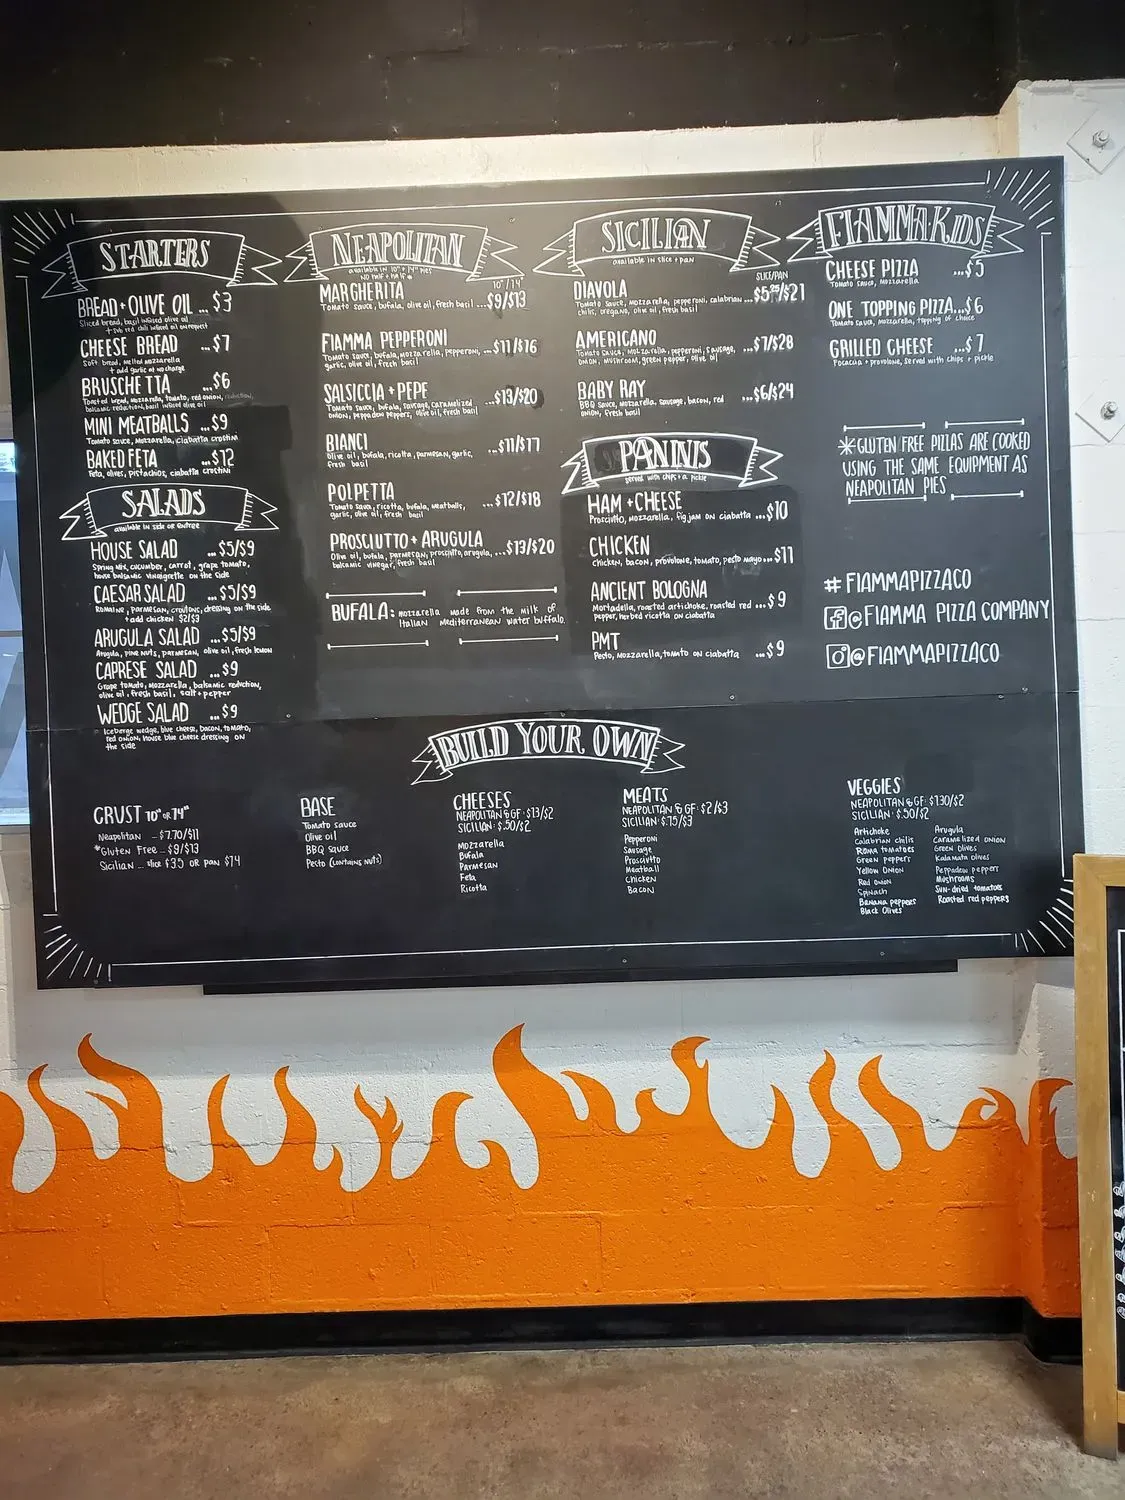 STARTERS
BREAD + OLIVE OIL ... $3
Sliced bread, basil infused olive oil
+ sub red chili infused oil on request
CHEESE BREAD ... $7
Soft bread, melted mozzarella
+ add garlic at no charge
BRUSCHETTA ... $6
Toasted bread, mozzarella, tomato, red onion, reduction,
balsamic reduction, basil infused olive oil
MINI MEATBALLS ... $9
Tomato sauce, mozzarella, ciabatta crostini
BAKED FETA ... $12
Feta, olives, pistachios, ciabatta crostini
SALADS
available in side or entree
HOUSE SALAD ... $5/$9
Spring mix, cucumber, carrot, grape tomato,
house balsamic vinaigrette on the side
CAESAR SALAD ... $5/$9
Romaine, parmesan, croutons, dressing on the side
+ add chicken $2/$3
ARUGULA SALAD ... $5/$9
Arugula, pine nuts, parmesan, olive oil, fresh lemon
CAPRESE SALAD ... $9
Grape tomato, mozzarella, balsamic reduction,
olive oil, fresh basil, salt + pepper
WEDGE SALAD ... $9
Iceberge wedge, blue cheese, bacon, tomato,
red onion, house blue cheese dressing on
the side
NEAPOLITAN
available in 10" + 14" pies
NO half + half *
10"/14"
MARGHERITA
Tomato sauce, bufala, olive oil, fresh basil ... $9/$13
FIAMMA PEPPERONI
Tomato sauce, bufala, mozzarella, pepperoni, ... $11/$16
garlic, olive oil, fresh basil
SALSICCIA + PEPE
Tomato sauce, bufala, sausage, caramelized ... $13/$20
onion, peppadew peppers, olive oil, fresh basil
BIANCI
Olive oil, bufala, ricotta, parmesan, garlic, ... $11/$17
fresh basil
POLPETTA
Tomato sauce, ricotta, bufala, meatballs, ... $12/$18
garlic, olive oil, fresh basil
PROSCIUTTO + ARUGULA
Olive oil, bufala, parmesan, prosciutto, arugula, ... $13/$20
balsamic vinegar, fresh basil
BUFALA: mozzarella made from the milk of
Italian Mediterranean water buffalo.
SICILIAN
available in slice + pan
SLICE/PAN
DIAVOLA
Tomato sauce, mozzarella, pepperoni, calabrian ... $5.25/$21
chilis, oregano, olive oil, fresh basil
AMERICANO
Tomato sauce, mozzarella, pepperoni, sausage, ... $7/$28
onion, mushroom, green pepper, olive oil
BABY RAY
BBQ sauce, mozzarella, sausage, bacon, red ... $6/$24
onion, fresh basil
PANINIS
served with chips + a pickle
HAM + CHEESE
Prosciutto, mozzarella, fig jam on ciabatta ... $10
CHICKEN
Chicken, bacon, provolone, tomato, pesto mayo ... $11
ANCIENT BOLOGNA
Mortadella, roasted artichoke, roasted red ... $9
pepper, herbed ricotta on ciabatta
PMT
Pesto, mozzarella, tomato on ciabatta ... $9
FIAMMA KIDS
CHEESE PIZZA ... $5
Tomato sauce, mozzarella
ONE TOPPING PIZZA ... $6
Tomato sauce, mozzarella, topping of choice
GRILLED CHEESE ... $7
Focaccia + provolone, served with chips + pickle
*GLUTEN FREE PIZZAS ARE COOKED
USING THE SAME EQUIPMENT AS
NEAPOLITAN PIES
# FIAMMAPIZZACO
@FIAMMA PIZZA COMPANY
@FIAMMAPIZZACO
BUILD YOUR OWN
CRUST 10" OR 14"
Neapolitan - $7.70/$11
*Gluten Free - $9/$13
Sicilian ... slice $3.5 OR pan $14
BASE
Tomato sauce
Olive oil
BBQ sauce
Pesto (contains nuts)
CHEESES
NEAPOLITAN & GF: $1.3/$2
SICILIAN: $.50/$2
Mozzarella
Bufala
Parmesan
Feta
Ricotta
MEATS
NEAPOLITAN & GF: $2/$3
SICILIAN: $.75/$3
Pepperoni
Sausage
Prosciutto
Meatball
Chicken
Bacon
VEGGIES
NEAPOLITAN & GF: $1.30/$2
SICILIAN: $.50/$2
Artichoke
Calabrian chilis
Roma tomatoes
Green peppers
Yellow Onion
Red onion
Spinach
Banana peppers
Black Olives
Arugula
Caramelized onion
Green Olives
Kalamata olives
Peppadew peppers
Mushrooms
Sun-dried tomatoes
Roasted red peppers